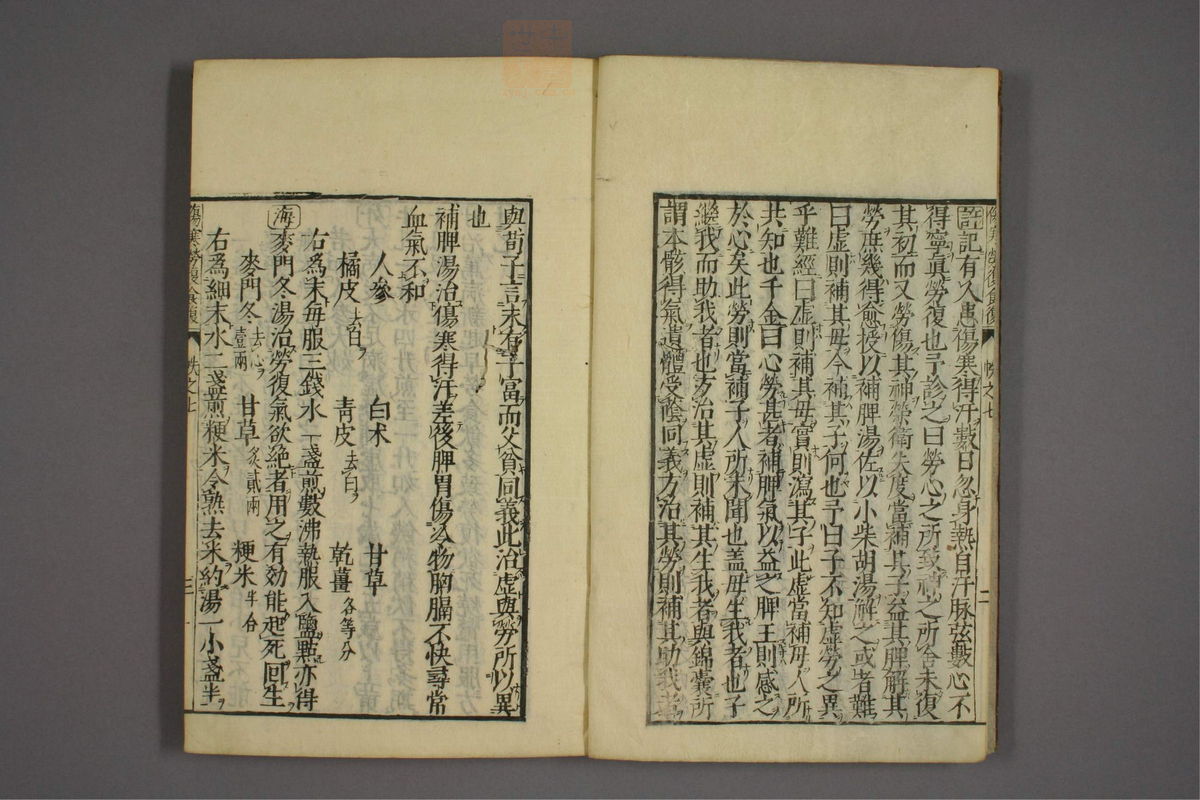 傷寒勞復食復
帙之七
二
許記有久患傷寒得汗數日忽身熱自汗脉弦數心不
得寧真勞復也予診之曰勞心之所致神之所舍未復
其初而又勞傷其神榮衛失度當補其子益其脾解其
勞庶幾得愈授以補脾湯佐以小柴胡湯解之或者難
曰虛則補其母今補其子何也予曰子不知虛勞之異
乎難經曰虛則補其母實則瀉其子此虛當補母人所
共知也千金曰心勞甚者補脾氣以益之脾王則感之
於心矣此勞則當補子人所未聞也盖母生我者也子
繼我而助我者也方治其虛則補其生我者與錦囊所
謂本骸得氣遺體受蔭同義方治其勞則補其助我者
與荀子言未有子富而父貧同義此治虛與勞所以異
也
補脾湯治傷寒得汗差後脾胃傷冷物胸膈不快尋常
血氣不和
人參 白朮 甘草
橘皮去白 青皮去白 乾薑各等分
右爲末每服三錢水一盞煎數沸熱服入鹽點亦得
海麥門冬湯治勞復氣欲絕者用之有効能起死回生
麥門冬去心壹兩 甘草炙貳兩 粳米半合
右爲細末水二盞煎粳米令熟去米約湯一小盞半
傷寒勞復食復
帙之七
三